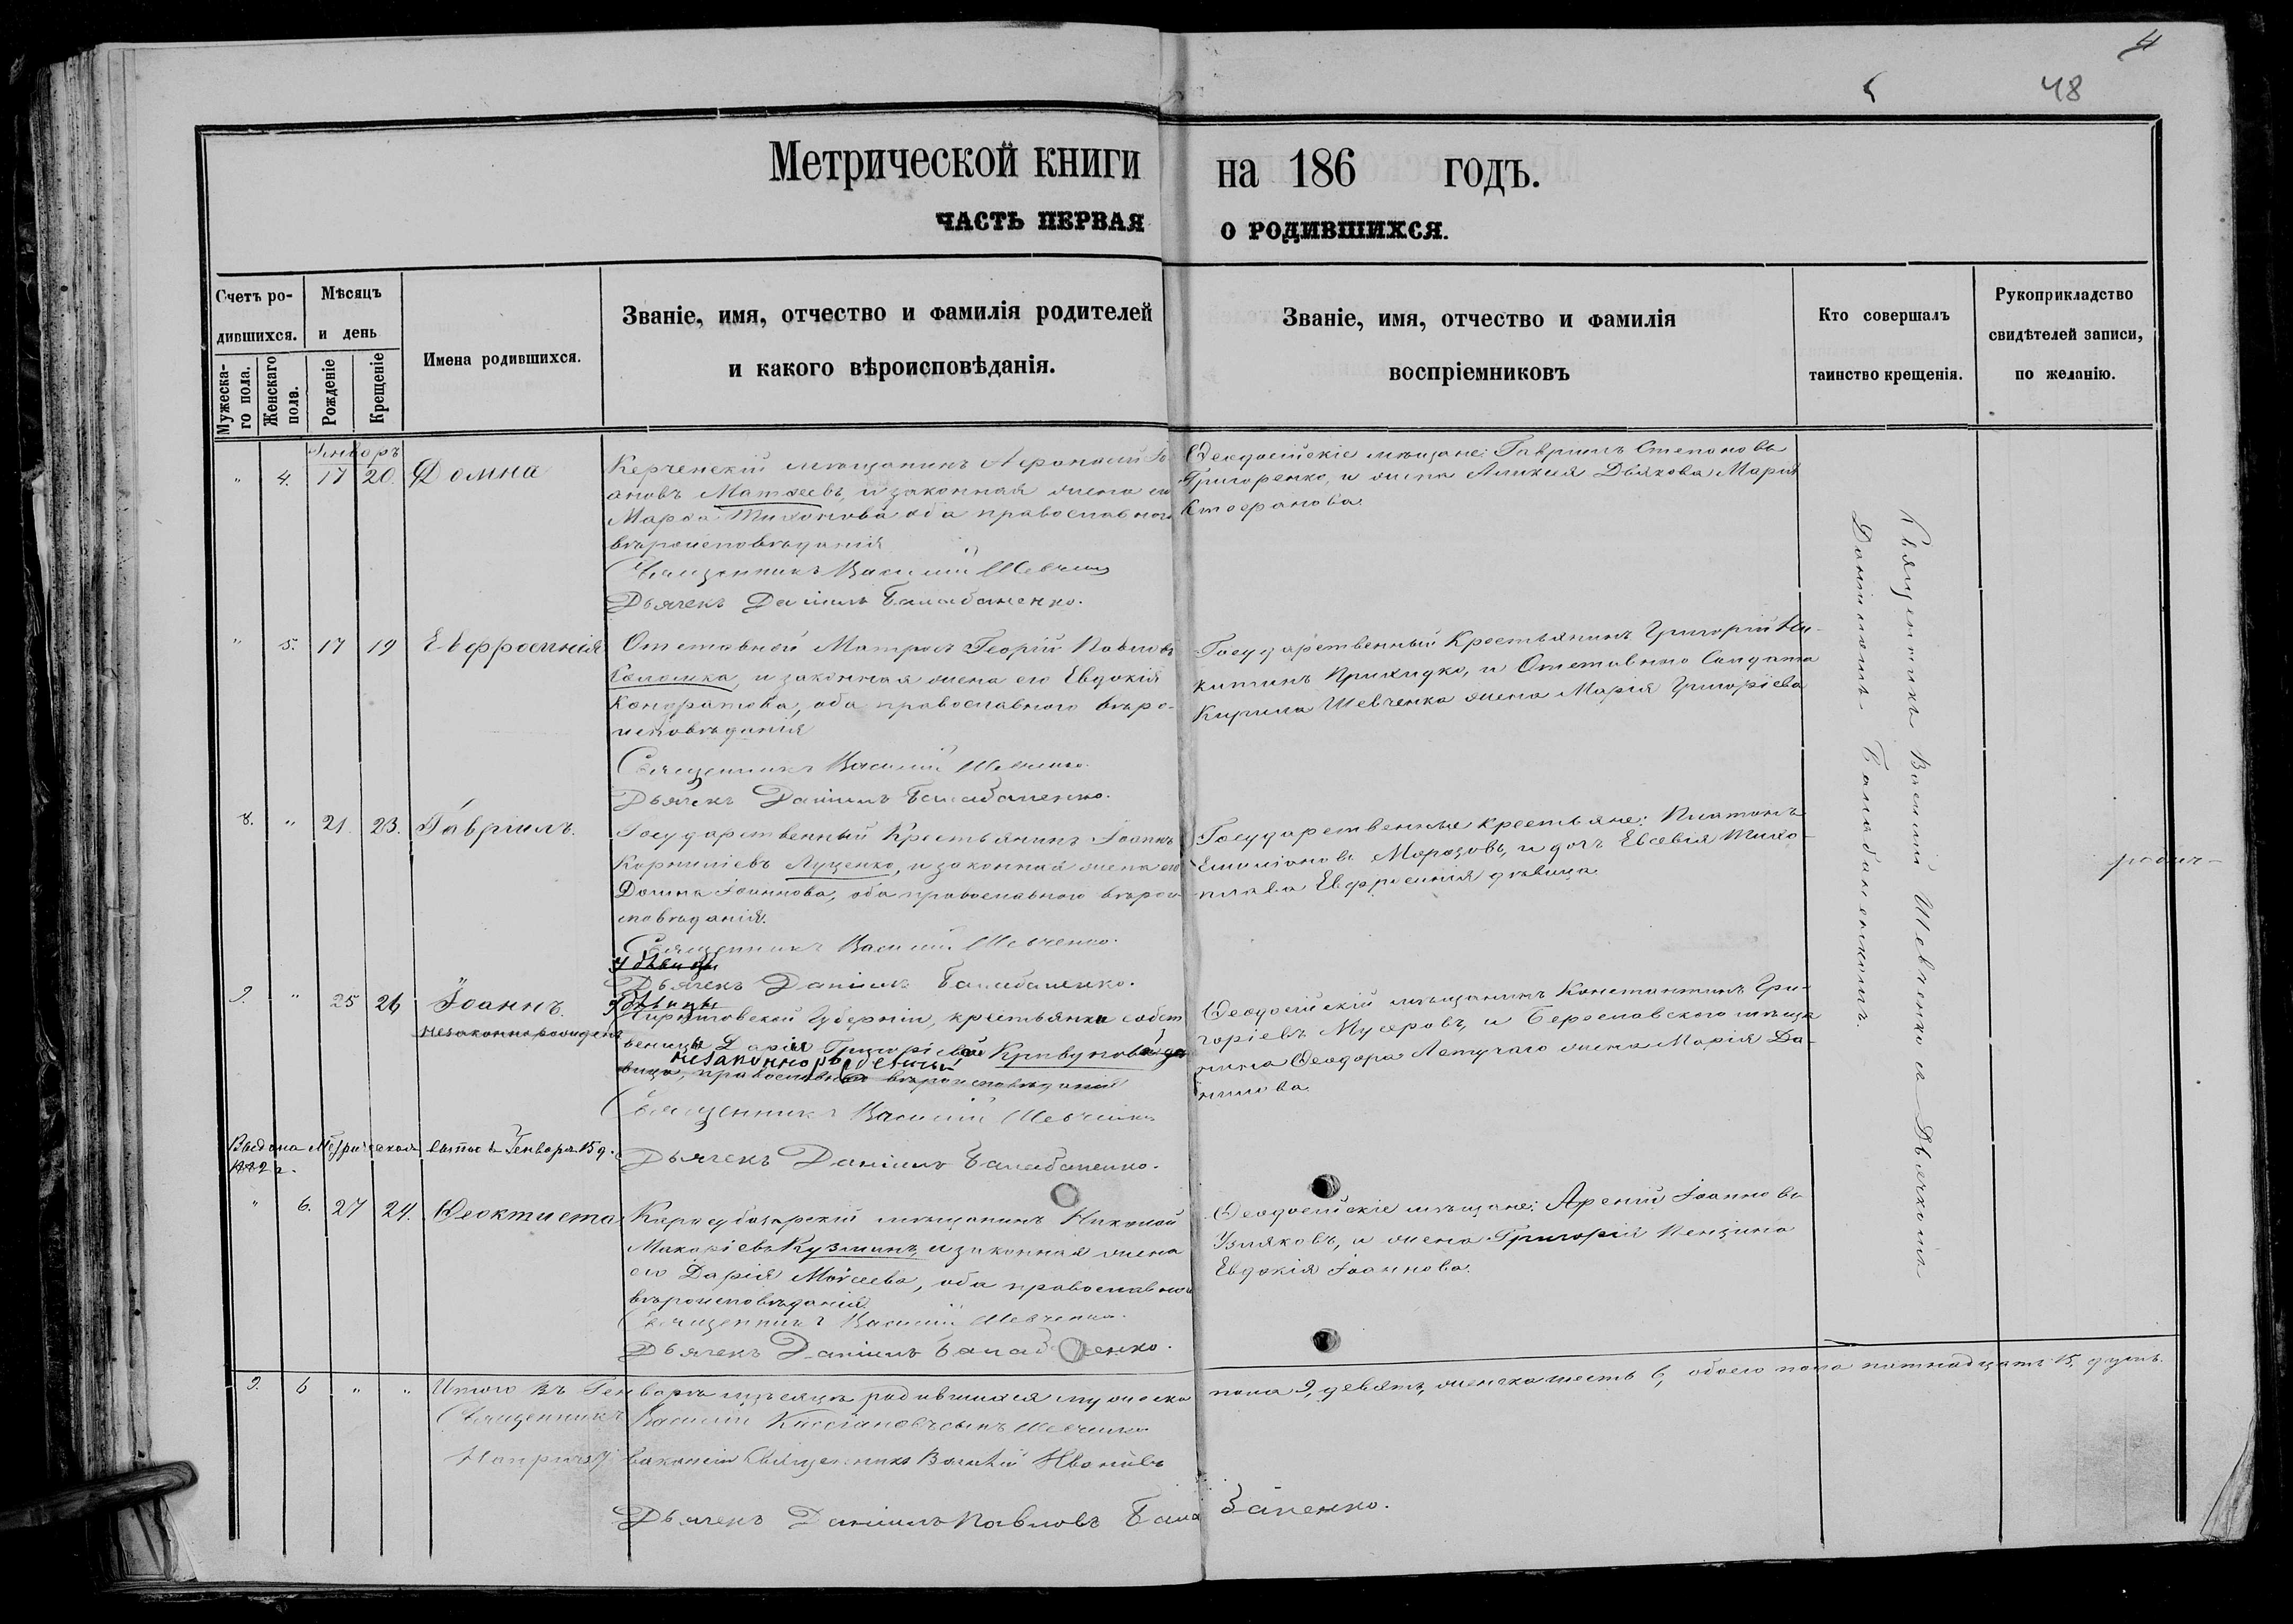 4
48
Метрической книги на 186 годъ.
ЧАСТЬ ПЕРВАЯ О РОДИВШИХСЯ.
Счетъ ро-
дившихся.
Мужеска-
го пола.
Женскаго
пола.
Мѣсяцъ
и день
Рожденіе
Крещеніе
Имена родившихся.
Званіе, имя, отчество и фамилія родителей
и какого вѣроисповѣданія.
Званіе, имя, отчество и фамилія
воспріемниковъ
Кто совершалъ
таинство крещенія.
Рукоприкладство
свидѣтелей записи,
по желанію.
Генваръ
" 4. 17 20. Домна
Керченскій мѣщанинъ Афанасій Іо-
ановъ Матвеевъ, и законная жена его
Марѳа Тихонова оба православнаго
вѣроисповѣданія
Священникъ Василій Шевченко
Дьячекъ Даніилъ Балабаненко.
Ѳеодосійскіе мѣщане: Гавріилъ Степановъ
Григоренко, и жена Алексея Дьякова Марія
Стефанова.
" 5. 17 19 Евфросинія
Отставной Матросъ Георгій Павловъ
и законная жена его Евдокія
Кондратова, оба православнаго вѣро-
исповѣданія
Священникъ Василій Шевченко.
Дьячекъ Даніилъ Балабаненко.
Государственный Крестьянинъ Григорій Ни-
китинъ Прихидко, и Отставного Солдата
Кирила Шевченка жена Марія Григоріева
8. " 21. 23. Гавріилъ.
Государственный Крестьянинъ Іоаннъ
Корниліевъ Луценко, и законная жена его
Домна Іоаннова, оба православнаго вѣрои-
сповѣданія.
Священникъ Василій Шевченко.
Дьячекъ Даніилъ Балабаненко.
Государственные крестьяне: Платонъ
Емиліановъ Морозовъ, и дочь Евсевія
Евфросинія дѣвица
9. " 25 26 Іоаннъ.
незаконнорожденъ
У дѣвицы
дѣвицы
Губерніи, крестьянки собст
венницы Даріи Григоріевой Кривуновой дѣ
вица, православнаго вѣроисповѣданія
незаконнорожденный
Священникъ Василій Шевченко
Дьячекъ Даніилъ Балабаненко.
Ѳеодосійскій мѣщанинъ Константинъ Гри-
горіевъ Мусеровъ, и Бериславскаго мѣща
нина Ѳеодора Летучаго жена Марія Да-
нилова.
Выдана Метрическая вып Генваря 15 д.
1882 г.
" 6. 27 29. Ѳеоктиста
Карасубазарскій мѣщанинъ Николай
Макаріевъ Кузминъ, и законная жена
его Дарія Моѵсеева, оба православнаго
вѣроисповѣданія.
Священникъ Василій Шевченко.
Дьячекъ Даніилъ Балабаненко.
Ѳеодосійскіе мѣщане: Арсеній Іоанновъ
Узляковъ, и жена Григорія Пензина
Евдокія Іоаннова.
Священникъ Василій Шевченко съ Дьячкомъ
Даніиломъ Балабаненкомъ.
9. 6 " " Итого въ Генварѣ мѣсяцѣ родившихся мужеска пола 9, девять, женска шесть 6, обоего пола пятнадцать 15, душъ.
Священникъ Василій Кассіановъ сынъ Шевченко
Священникъ
Дьячекъ Даніилъ Павловъ Балабаненко.